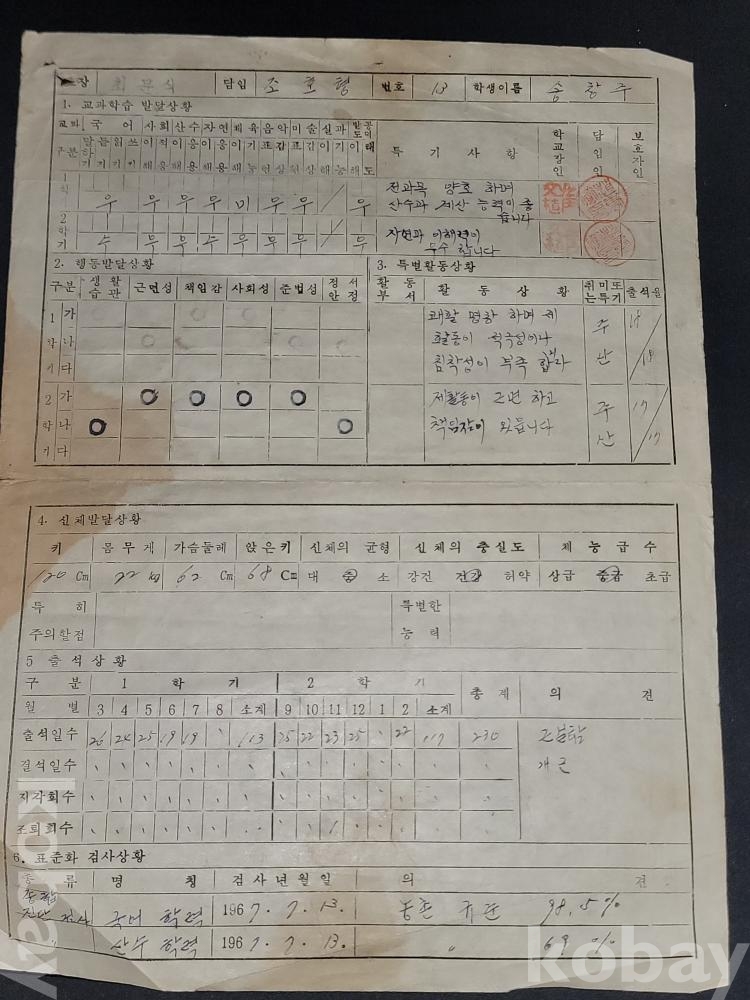 장 최문식 담임 조호형 번호 13 학생이름 송창주
1. 교과학습 발달상황
교과 국어 사회 산수 자연 체육 음악 미술 실과
구분 말하기 듣기 읽기 쓰기 이해 적응 이해 응용 이해 응용 이해 기능 표현 감상 표현 감상 이해 기능 이해 태도
특기사항 학교장인 담임인 보호자인
1학 우 우 우 우 미 우 우 / 우
전과목 양호 하며
산수과 계산 능력이 좋
습니다
2학기 수 우 우 수 우 우 우 / 우
자연과 이해력이
우수 합니다
2. 행동발달상황
구분 생활습관 근면성 책임감 사회성 준법성 정서안정
1학기 가 나 다
2학기 가 나 다
3. 특별활동상황
활동부서 활동상황 취미또는특기 출석율
쾌활 명랑 하며 제
활동이 적극성이나
침착성이 부족 합니다
주산 18/18
제활동이 근면 하고
책임감이 있읍니다
주산 17/17
4. 신체발달상황
키 몸무게 가슴둘레 앉은키 신체의 균형 신체의 충실도 체능급수
120 Cm 22 kg 62 Cm 68 Cm 대 중 소 강건 건강 허약 상급 중급 초급
특히 주의할점
특별한 능력
5 출석상황
구분 1학기 2학기 총계 의견
월별 3 4 5 6 7 8 소계 9 10 11 12 1 2 소계
출석일수 26 24 25 19 19 113 25 22 23 25 22 117 230
결석일수
개근
지각회수
조퇴회수
6. 표준화 검사상황
종류 명칭 검사년월일 의견
검사 국어 학력 1967. 7. 13. 농촌 규준 98.5%
산수 학력 1967. 7. 13. 〃 69 %
kobay
kobay